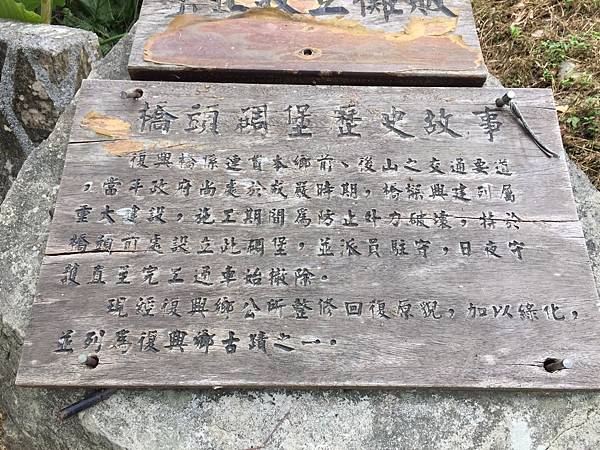 橋頭碉堡歷史故事
復興橋係連貫本鄉前、後山之交通要道
，當年政府尚處於戒嚴時期，橋樑興建列屬
重大建設，施工期間為防止外力破壞，特於
橋頭前處設立此碉堡，並派員駐守，日夜守
護直至完工通車始撤除。
現經復興鄉公所整修回復原貌，加以綠化，
並列為復興鄉古蹟之一。